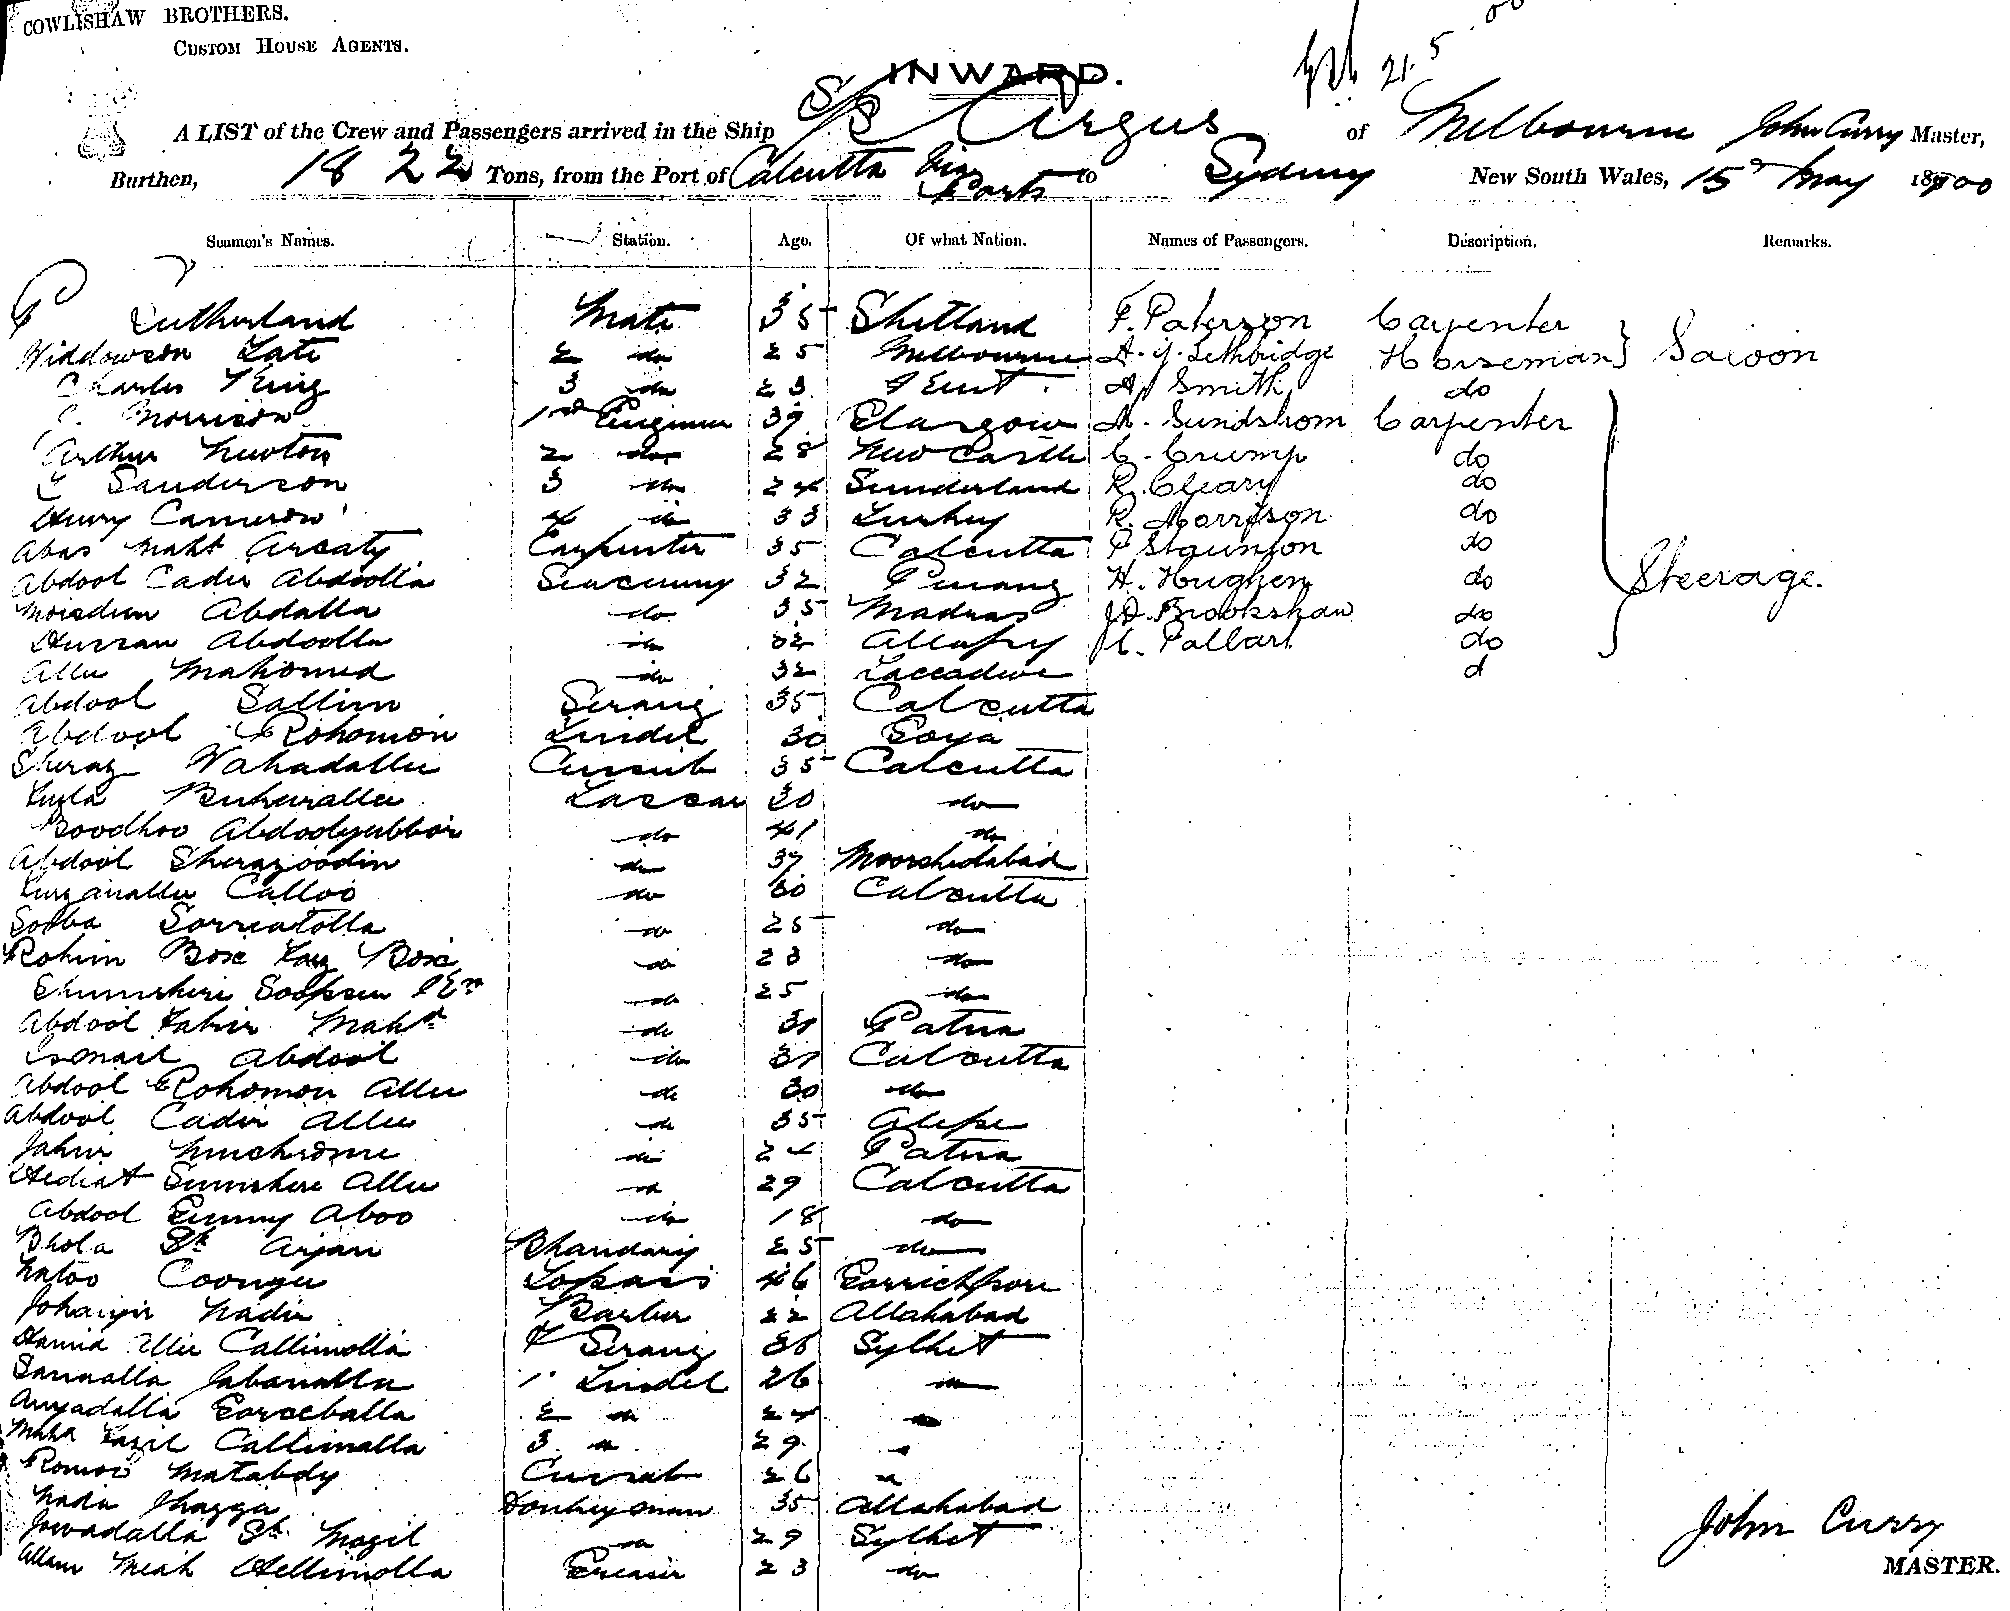 COWLISHAW BROTHERS.
CUSTOM HOUSE AGENTS.
21.5.00
INWARD.
A LIST of the Crew and Passengers arrived in the Ship S/S Argus of Melbourne John Curry Master,
Burthen, 1822 Tons, from the Port of Calcutta via Ports to Sydney New South Wales, 15 May 1900
Seamen's Names. Station. Age. Of what Nation. Names of Passengers. Description. Remarks.
Sutherland Mate 35 Shetland F. Paterson Carpenter
Widdowson Tate 2 do 25 Melbourne A. G. Lethbridge Horseman } Saloon
Charles King 3 do 23 Kent A Smith do
Morrison 1st Engineer 39 Glasgow A. Sundstrom Carpenter
Arthur Newton 2 do 28 New Castle C. Crump do
Sanderson 3 do 24 Sunderland R. Cleary do
Henry Cameron 4 do 33 Turkey R. Morrison do
Abas Maht Arcaty Carpenter 35 Calcutta P Staunton do
Abdool Cader Abdoolla Seacunny 32 Penang H. Hughen do Steerage.
Moisdeen Abdalla do 35 Madras J.D. Brookshaw do
Hussan Abdoolla do 32 Allapey Pallart do
Allee Mahomed do 32 Laccadive d
Abdool Sallim Serang 35 Calcutta
Abdool Rohomon Tindel 30 Goya
Sheraz Wahadallee Cussub 35 Calcutta
Buheirallee Lascar 30 do
Boodhoo Abdoolgubbor do 41 do
Abdool Sherazoodin do 37 Moorshedabad
Calloo do 30 Calcutta
Sooba Sorreatolla do 25 do
Rohim Box Box do 23 do
do 25 do
Abdool Tahir Maht do 31 Patna
Ismail Abdool do 31 Calcutta
Abdool Rohomon Allee do 30 do
Abdool Cadir Allee do 35 Alepe
Jahir do 24 Patna
Hediat Sumshere Allee do 29 Calcutta
Abdool Gunny Aboo do 18 do
Bhola Sk Arjan Bhandary 25 do
Natoo Coongee Topass 46
Johangir Nadir Barber 22 Allahabad
Hamid Allee Callimolla Serang 36 Sylhet
Sanualla Jabanallee 1 Tindel 26 do
Eorceballa 2 do 24 do
Maha Fazil Callimalla 3 do 29 do
Matabdy Cussab 26 do
Nadir Jhagga Donkeyman 35 Allahabad
Jowadalla Sk Mozil do 29 Sylhet
Allam Meah Hellimolla Greaser 23 do
John Curry
MASTER.